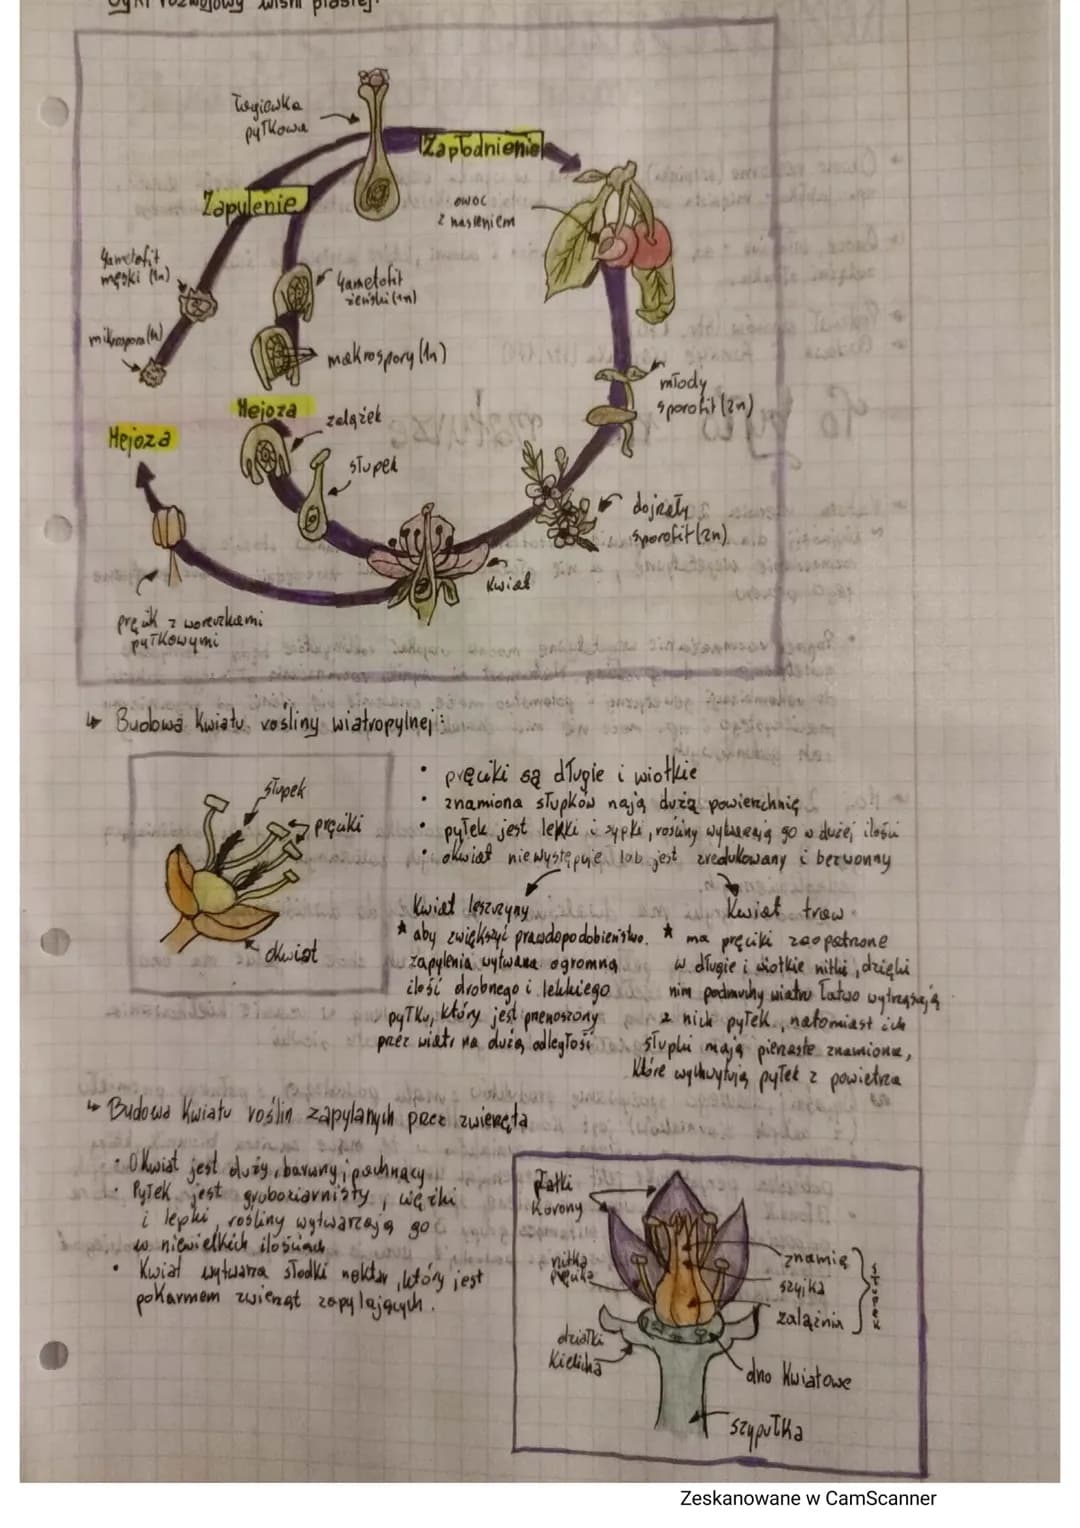 Cykl rozwojowy wiśni ptasiej:
Łagiewka
pyłkowa
Zapłodnienie
Zapylenie
owoc
z nasieniem
gametofit
męski (1n)
gametofit
żeński (1n)
mikrospora (1n)
makrospory (1n)
młody
sporofit (2n)
Mejoza
zalążek
Mejoza
słupek
dojrzały
sporofit (2n)
kwiat
pręcik z woreczkami
pyłkowymi
↳ Budowa kwiatu rośliny wiatropylnej:
słupek
pręciki
okwiat
• pręciki są długie i wiotkie
• znamiona słupków nają dużą powierzchnię
• pyłek jest lekki i sypki, rośliny wytwarzają go w dużej ilości
• okwiat nie występuje lub jest zredukowany i bezwonny
Kwiat leszczyny
* aby zwiększyć prawdopodobieństwo
zapylenia wytwarza ogromną
ilość drobnego i lekkiego
pyłku, który jest przenoszony
przez wiatr na dużą odległość
Kwiat traw
* ma pręciki zaopatrzone
w długie i wiotkie nitki, dzięki
nim podmuchy wiatru łatwo wytrząsają
z nich pyłek, natomiast ich
słupki mają pierzaste znamiona,
które wychwytują pyłek z powietrza
↳ Budowa kwiatu roślin zapylanych przez zwierzęta
• Okwiat jest duży, barwny i pachnący
• Pyłek jest gruboziarnisty, ciężki
i lepki, rośliny wytwarzają go
w niewielkich ilościach
• Kwiat wytwarza słodki nektar, który jest
pokarmem zwierząt zapylających.
płatki
korony
nitka
pręcika
znamię
szyjka
zalążnia
słupek
działki
kielicha
dno kwiatowe
szypułka
Zeskanowane w CamScanner